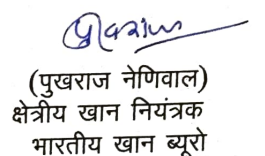 पुखराज
(पुखराज नेणिवाल)
क्षेत्रीय खान नियंत्रक
भारतीय खान ब्यूरो